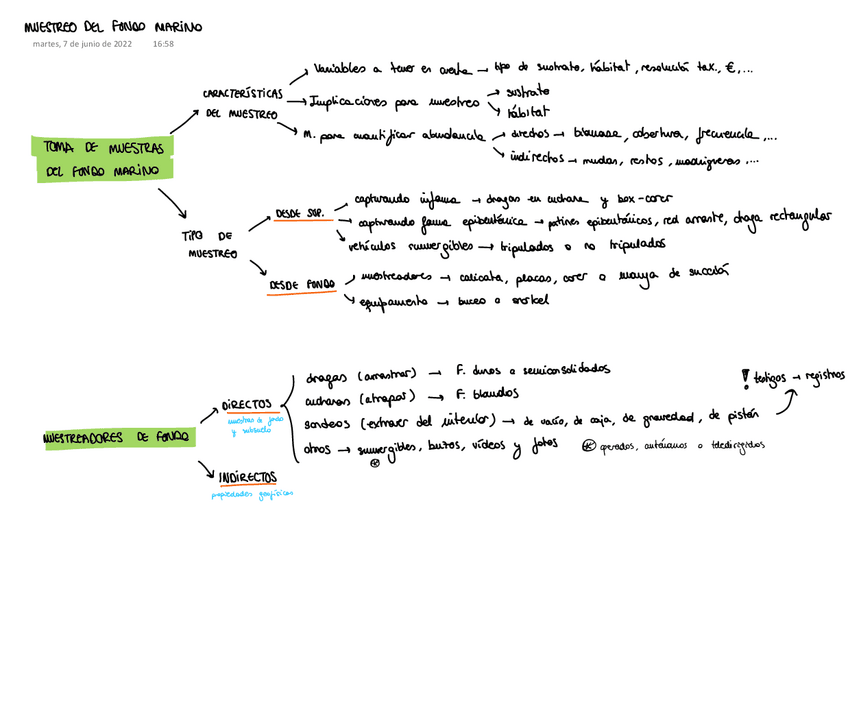 MUESTREO DEL FONDO MARINO
martes, 7 de junio de 2022 16:58
Variables a tener en cuenta → tipo de sustrato, hábitat, resolución tax., €, ...
CARACTERÍSTICAS
DEL MUESTREO
Implicaciones para muestreo → sustrato
hábitat
M. para cuantificar abundancia → directos → biomasa, cobertura, frecuencia, ...
indirectos → mudas, restos, madrigueras ...
TOMA DE MUESTRAS
DEL FONDO MARINO
TIPO DE
MUESTREO
DESDE SUP.
capturando infauna → dragas en cuchara y box-corer
capturando fauna epibentónica → patines epibentónicos, red arrastre, draga rectangular
vehículos sumergibles → tripulados o no tripulados
DESDE FONDO
muestreadores → calicata, placas, corer o manga de succión
equipamento → buceo o snorkel
MUESTREADORES DE FONDO
DIRECTOS
muestras de fondo
y subsuelo
dragas (arrastrar) → F. duros o semiconsolidados
cucharas (atrapar) → F. blandos
sondeos (extraer del interior) → de vacío, de caja, de gravedad, de pistón
! testigos → registros
otros → sumergibles, buzos, vídeos y fotos
* operados, autónomos o teledirigidos
INDIRECTOS
propiedades geofísicas